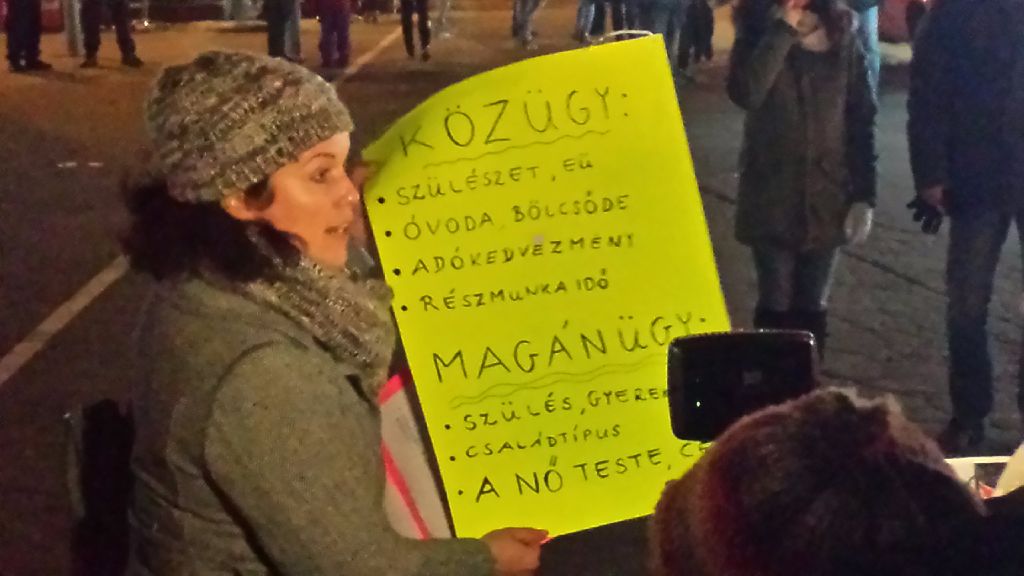 KÖZÜGY:
• SZÜLÉSZET, EÜ
• ÓVODA, BÖLCSŐDE
• ADÓKEDVEZMÉNY
• RÉSZMUNKAIDŐ
MAGÁNÜGY:
• SZÜLÉS,
• CSALÁDTÍPUS
• A NŐ TESTE,